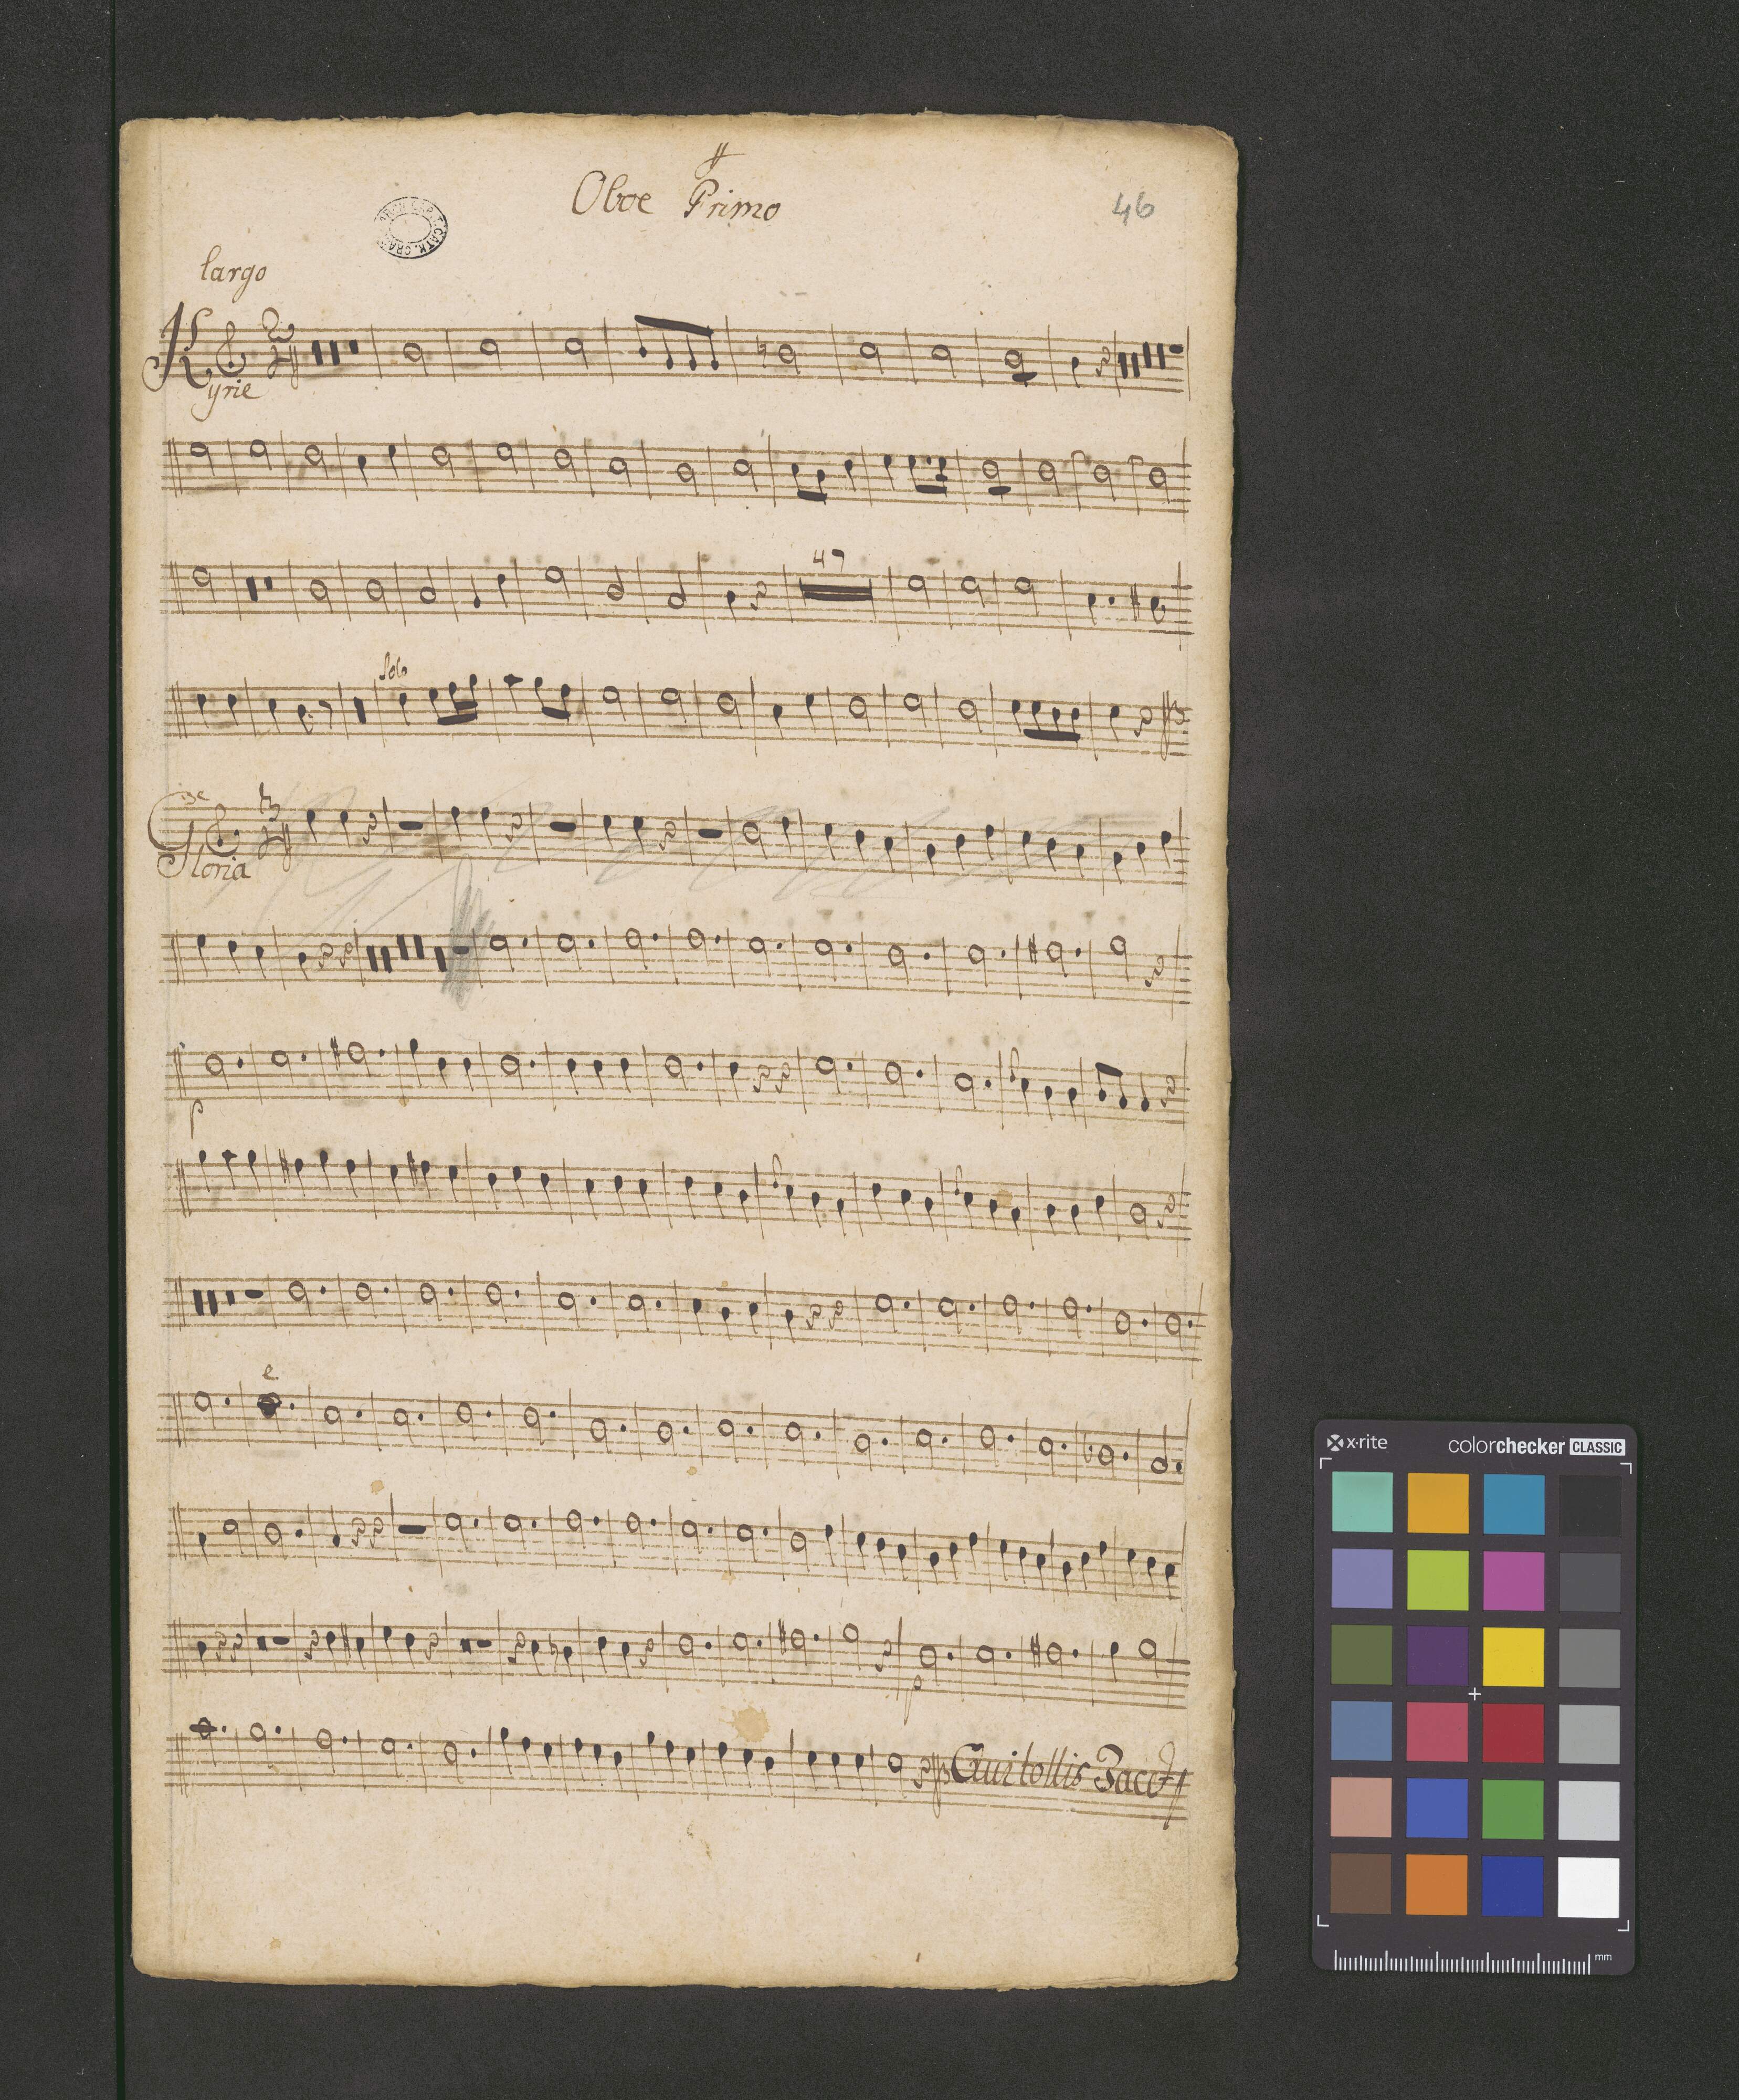 Oboe Primo
46
largo
Kyrie
47
Solo
Gloria
p
e
p
Qui tollis Pacc
x-rite
colorchecker CLASSIC
mm